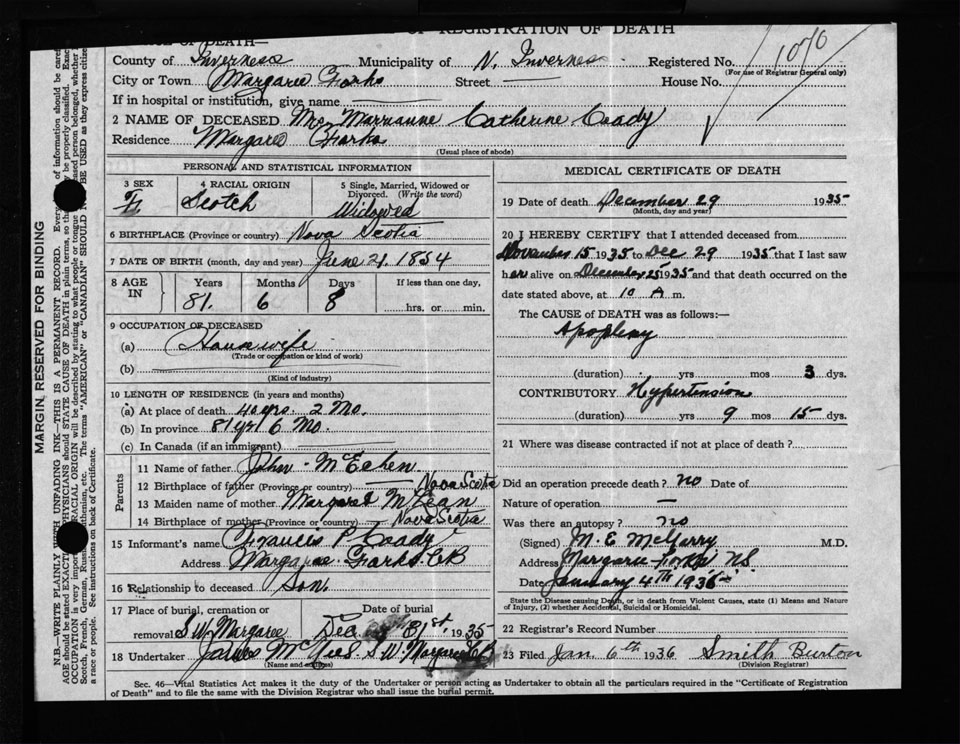 OF REGISTRATION OF DEATH
OF DEATH—
County of Inverness Municipality of N. Inverness Registered No. 1070
(For use of Registrar General only)
City or Town Margaree Forks Street House No.
If in hospital or institution, give name
2 NAME OF DECEASED Mrs Marrianne Catherine Coady
Residence Margaree Forks
(Usual place of abode)
MARGIN RESERVED FOR BINDING
N.B.—WRITE PLAINLY WITH UNFADING INK—THIS IS A PERMANENT RECORD. Every of information should be
AGE should be stated EXACTLY PHYSICIANS should STATE CAUSE OF DEATH in plain terms, so that be properly classified.
OCCUPATION is very RACIAL ORIGIN will be described by stating to what people or tongue person belonged, whether
Scotch, French, German, etc. The terms "AMERICAN" or "CANADIAN" SHOULD BE USED as they express
a race or people. See instructions on back of Certificate.
PERSONAL AND STATISTICAL INFORMATION
3 SEX F
4 RACIAL ORIGIN Scotch
5 Single, Married, Widowed or Divorced. (Write the word) Widowed
6 BIRTHPLACE (Province or country) Nova Scotia
7 DATE OF BIRTH (month, day and year) June 21 1854
8 AGE IN Years 81 Months 6 Days 8 If less than one day, hrs. or min.
9 OCCUPATION OF DECEASED
(a) Housewife
(Trade or occupation or kind of work)
(b)
(Kind of industry)
10 LENGTH OF RESIDENCE (in years and months)
(a) At place of death 40 yrs. 2 Mo.
(b) In province 81 yrs 6 Mo.
(c) In Canada (if an immigrant)
Parents
11 Name of father John McEchen
12 Birthplace of father (Province or country) Nova Scotia
13 Maiden name of mother Margaret McLean
14 Birthplace of mother (Province or country) Nova Scotia
15 Informant's name Francis P Coady
Address Margaree Forks CB
16 Relationship to deceased Son.
17 Place of burial, cremation or removal S.W. Margaree
Date of burial Dec 31st. 1935
18 Undertaker James S.W. Margaree
(Name and address)
MEDICAL CERTIFICATE OF DEATH
19 Date of death December 29 1935
(Month, day and year)
20 I HEREBY CERTIFY that I attended deceased from
November 15 1935 to Dec 29 1935 that I last saw
her alive on December 25 1935 and that death occurred on
date stated above, at 10 A m.
The CAUSE of DEATH was as follows:—
Apoplexy
(duration) yrs mos 3 dys.
CONTRIBUTORY Hypertension
(duration) yrs 9 mos 15 dys.
21 Where was disease contracted if not at place of death?
Did an operation precede death? no Date of
Nature of operation —
Was there an autopsy? no
(Signed) M. E. McGarry M.D.
Address Margaree Forks NS
Date January 4th 1936
State the Disease causing Death, or in death from Violent Causes, state (1) Means and Nature of Injury, (2) whether Accidental, Suicidal or Homicidal.
22 Registrar's Record Number
23 Filed Jan. 6th 1936 Smith Burton
(Division Registrar)
Sec. 46—Vital Statistics Act makes it the duty of the Undertaker or person acting as Undertaker to obtain all the particulars required in the "Certificate of Registration
of Death" and to file the same with the Division Registrar who shall issue the burial permit.